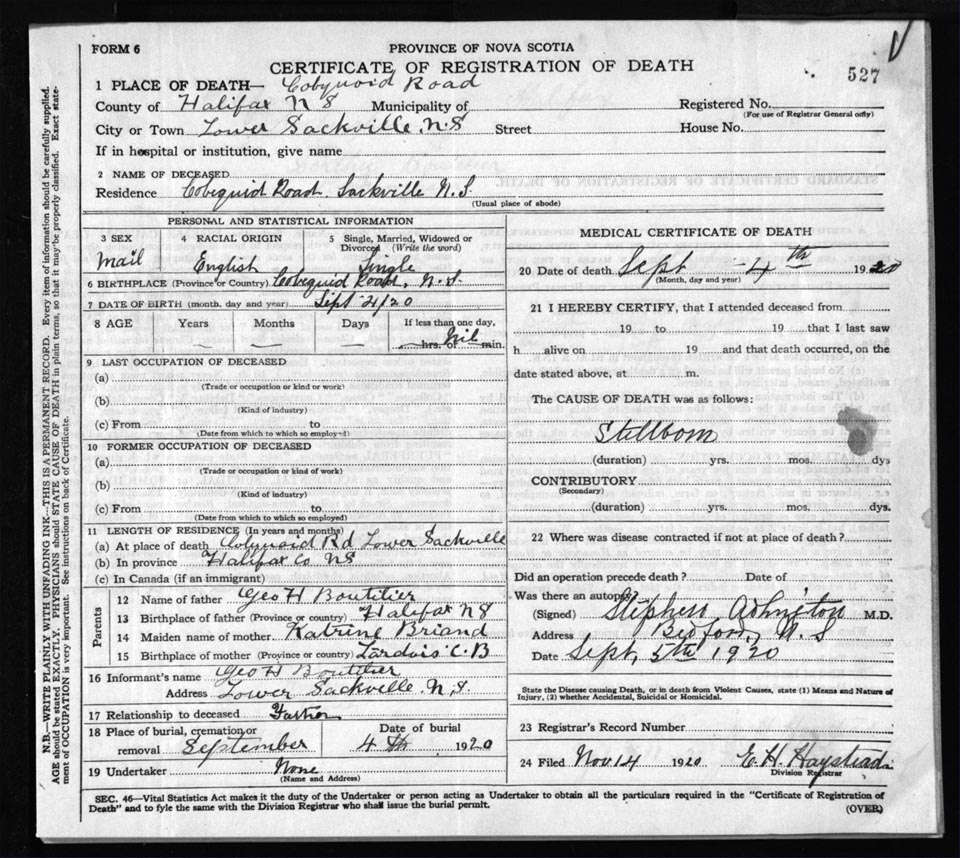 FORM 6
PROVINCE OF NOVA SCOTIA
CERTIFICATE OF REGISTRATION OF DEATH
527
1 PLACE OF DEATH— Cobyuoid Road
County of Halifax N S Municipality of
Registered No.
(For use of Registrar General only)
City or Town Lower Sackville, N.S Street House No.
If in hospital or institution, give name
2 NAME OF DECEASED
Residence Cobequid Road. Sackville N. S.
(Usual place of abode)
PERSONAL AND STATISTICAL INFORMATION
3 SEX 4 RACIAL ORIGIN 5 Single, Married, Widowed or Divorced (Write the word)
mail English Single
6 BIRTHPLACE (Province or Country) Cobequid Road, N.S.
7 DATE OF BIRTH (month, day and year) Sept 4/20
8 AGE Years Months Days If less than one day,
— — — — hrs. or Nil min.
9 LAST OCCUPATION OF DECEASED
(a)
(Trade or occupation or kind or work)
(b)
(Kind of industry)
(c) From to
(Date from which to which so employed)
10 FORMER OCCUPATION OF DECEASED
(a)
(Trade or occupation or kind of work)
(b)
(Kind of industry)
(c) From to
(Date from which to which so employed)
11 LENGTH OF RESIDENCE (In years and months)
(a) At place of death Cobyuoid Rd Lower Sackville
(b) In province Halifax Co NS
(c) In Canada (if an immigrant)
Parents
12 Name of father Geo H Boutilier
13 Birthplace of father (Province or country) Halifax N S
14 Maiden name of mother Katrine Briand
15 Birthplace of mother (Province or country) Lardois C.B
16 Informant's name Geo H Boutilier
Address Lower Sackville N.S.
17 Relationship to deceased Father
18 Place of burial, cremation or removal Date of burial
September 4th 1920
19 Undertaker None
(Name and Address)
MEDICAL CERTIFICATE OF DEATH
20 Date of death Sept 4th 1920
(Month, day and year)
21 I HEREBY CERTIFY, that I attended deceased from
19 to 19 that I last saw
h alive on 19 and that death occurred, on the
date stated above, at m.
The CAUSE OF DEATH was as follows:
Stillborn
(duration) yrs. mos. dys
CONTRIBUTORY
(Secondary)
(duration) yrs. mos. dys.
22 Where was disease contracted if not at place of death?
Did an operation precede death? Date of
Was there an autopsy
(Signed) Stephen Ashington M.D.
Address Bedford, N. S
Date Sept, 5th 1920
State the Disease causing Death, or in death from Violent Causes, state (1) Means and Nature of
Injury, (2) whether Accidental, Suicidal or Homicidal.
23 Registrar's Record Number
24 Filed Nov 14 1920 E. H. Haystead
Division Registrar
SEC. 46—Vital Statistics Act makes it the duty of the Undertaker or person acting as Undertaker to obtain all the particulars required in the "Certificate of Registration of
Death" and to fyle the same with the Division Registrar who shall issue the burial permit.
(OVER)
N.B.—WRITE PLAINLY WITH UNFADING INK—THIS IS A PERMANENT RECORD. Every item of information should be carefully supplied.
AGE should be stated EXACTLY. PHYSICIANS should STATE CAUSE OF DEATH in plain terms, so that it may be properly classified. Exact statement of OCCUPATION is very important. See instructions on back of Certificate.